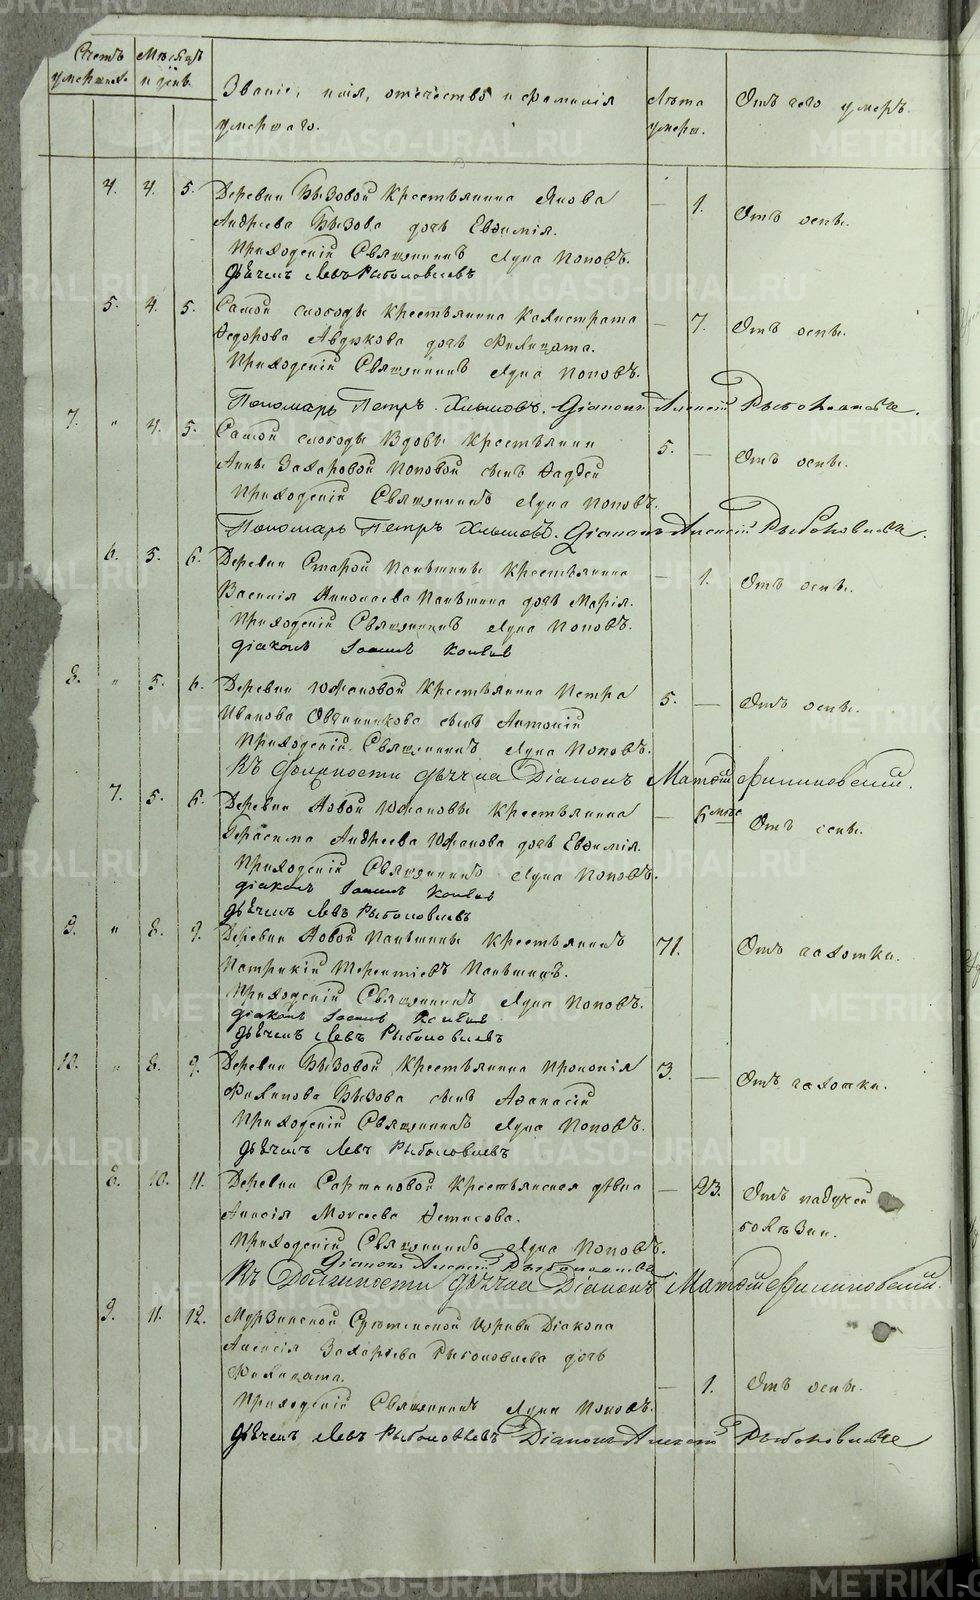 Счетъ умершихъ. Мѣсяцъ и день. Званіе, имя, отчество и фамилія умершаго. Лѣта умерш. Отъ чего умеръ.
4. 4. 5. Деревни Бызовой крестьянина Якова — 1. Отъ оспы.
Андреева Бызова дочь Евфимія.
Приходскій Священникъ Лука Поповъ.
Дьячекъ Левъ Рыболовлевъ
5. 4. 5. Самой слободы крестьянина Калистрата — 7. Отъ оспы.
Федорова Авдюкова дочь Филицата.
Приходскій Священникъ Лука Поповъ.
Пономарь Петръ Хлыновъ. Діаконъ Алексій Рыболовлевъ.
7. " 4. 5. Самой слободы Вдовы крестьянки 5. — Отъ оспы.
Анны Захаровой Поповой сынъ Фаддей
Приходскій Священникъ Лука Поповъ.
Пономарь Петръ Хлыновъ. Діаконъ Алексій Рыболовлевъ.
6. 5. 6. Деревни Старой Паньшины крестьянина — 1. Отъ оспы.
Василія Николаева Паньшина дочь Марія.
Приходскій Священникъ Лука Поповъ.
Діаконъ Іоаннъ
8. " 5. 6. Деревни Южаковой крестьянина Петра 5. — Отъ оспы.
Иванова Овчинникова сынъ Антоній
Приходскій Священникъ Лука Поповъ.
Въ должности дьячка Діаконъ Матѳій Филиповскій.
7. 5. 6. Деревни Новой Южаковы крестьянина — 6 мѣс. Отъ оспы.
Герасима Андреева Южакова дочь Евфимія.
Приходскій Священникъ Лука Поповъ.
Діаконъ Іоаннъ
Дьячекъ Левъ Рыболовлевъ
9. " 8. 9. Деревни Новой Паньшины крестьянинъ 71. Отъ чахотки.
Патрикій Терентіевъ Паньшинъ.
Приходскій Священникъ Лука Поповъ.
Діаконъ Іоаннъ
Дьячекъ Левъ Рыболовлевъ
10. " 8. 9. Деревни Бызовой крестьянина Прокопія 3. — Отъ чахотки.
Филипова Бызова сынъ Аѳанасій
Приходскій Священникъ Лука Поповъ.
Дьячекъ Левъ Рыболовлевъ
8. 10. 11. Деревни Сартаковой крестьянская дѣвка — 23. Отъ падучей
Анисія Моисеева Фетисова. болѣзни.
Приходскій Священникъ Лука Поповъ.
Діаконъ Алексій Рыболовлевъ
Въ Должности дьячка Діаконъ Матѳій Филиповскій.
9. 11. 12. Мурзинской Срѣтенской Церкви Діакона
Алексія Захаріева Рыболовлева дочь
Филицата. — 1. Отъ оспы.
Приходскій Священникъ Лука Поповъ.
Дьячекъ Левъ Рыболовлевъ Діаконъ Алексій Рыболовлевъ
METRIKI.GASO-URAL.RU